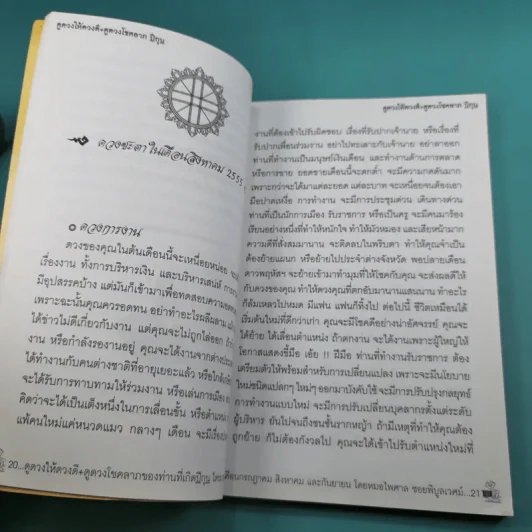 ดูดวงให้ดวงดี+ดูดวงโชคลาภ ปีกุน
ดวงชะตาในเดือนสิงหาคม 255
ดวงการงาน
ดวงของคุณในต้นเดือนนี้จะเหนื่อยหน่อย
เรื่องงาน ทั้งการบริหารเงิน และบริหารเสน่ห์ การ
มีอุปสรรคบ้าง แต่มันก็เข้ามาเพื่อทดสอบความอดท
เพราะฉะนั้นคุณควรอดทน อย่าทำอะไรผลีผลาม
ได้ข่าวไม่ดีเกี่ยวกับงาน แต่คุณจะไม่ถูกไล่ออก ถ้าก
งาน หรือกำลังรองานอยู่ คุณจะได้งานจากต่างประ
ได้ทำงานกับคนต่างชาติที่อายุเยอะแล้ว หรือใกล้
จะได้รับการทาบทามให้ร่วมงาน หรือเล่นการเมือง
คิดว่าจะได้เป็นเต็งหนึ่งในการเลื่อนขั้น หรือตำแหน
แพ้คนใหม่แค่หนวดแมว กลางๆ เดือน จะมีเรื่อง
20...ดูดวงให้ดวงดี+ดูดวงโชคลาภของท่านที่เกิดปีกุน
ดูดวงให้ดวงดี+ดูดวงโชคลาภ ปีกุน
งานที่ต้องเข้าไปรับผิดชอบ เรื่องที่รับปากเจ้านาย หรือเรื่องที่
รับปากเพื่อนร่วมงาน อย่าไปทะเลาะกับเจ้านาย อย่าลาออก
ท่านที่ทำงานเป็นมนุษย์เงินเดือน และทำงานด้านการตลาด
หรือการขาย ยอดขายเดือนนี้จะตกต่ำ จะมีความกดดันมาก
เพราะกว่าจะได้มาแต่ละยอด แต่ละบาท จะเหนื่อยจนต้องเอา
มือปาดเหงื่อ การทำงาน จะมีการประชุมด่วน เดินทางด่วน
ท่านที่เป็นนักการเมือง รับราชการ หรือเป็นครู จะมีคนมาร้อง
เรียนอย่างหนึ่งที่ทำให้หนักใจ ทำให้มัวหมอง และเสียหน้ามาก
ความดีที่สั่งสมมานาน จะติดลบในพริบตา ทำให้คุณจำเป็น
ต้องย้ายแผนก หรือย้ายไปประจำต่างจังหวัด พอปลายเดือน
ดาวพฤหัสฯ จะย้ายเข้ามาทำมุมที่ให้โชคกับคุณ จะส่งผลดีให้
กับดวงของคุณ ทำให้ดวงคุณที่ตกอับมานานแสนนาน ทำอะไร
ก็ล้มเหลวไปหมด มีแฟน แฟนก็ทิ้งไป ต่อไปนี้ ชีวิตเหมือนได้
เริ่มต้นใหม่ที่ดีกว่าเก่า คุณจะมีโชคดีอย่างน่าอัศจรรย์ คุณจะ
ได้ย้าย ได้เลื่อนตำแหน่ง ถ้าตกงาน จะได้งานเพราะผู้ใหญ่ให้
โอกาสแสดงฝีมือ เอ้ย !! ฝีมือ ท่านที่ทำงานรับราชการ ต้อง
เตรียมตัวให้พร้อมสำหรับการเปลี่ยนแปลง เพราะจะมีนโยบาย
ใหม่ชนิดแปลกๆ ใหม่ๆ ออกมาบังคับใช้ จะมีการปรับปรุงกลยุทธ์
การทำงานแบบใหม่ จะมีการปรับเปลี่ยนบุคลากรตั้งแต่ระดับ
ผู้บริหาร ยันไปจนถึงชนชั้นรากหญ้า ถ้ามีเหตุที่ทำให้คุณต้อง
ถูกย้าย ก็ไม่ต้องกังวลไป คุณจะได้เข้าไปรับตำแหน่งใหม่ที่
เดือนกรกฎาคม สิงหาคม และกันยายน โดยหมอไพศาล ซอยพิบูลเวศม์...21